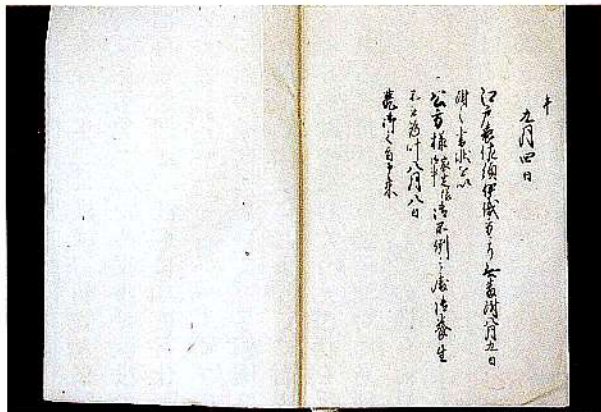 午
九月四日
江戸表佐須伊織方より八月九日
附之書状を以
一公方様御不例之処御養生
不被為叶八月八日
薨御之旨申来